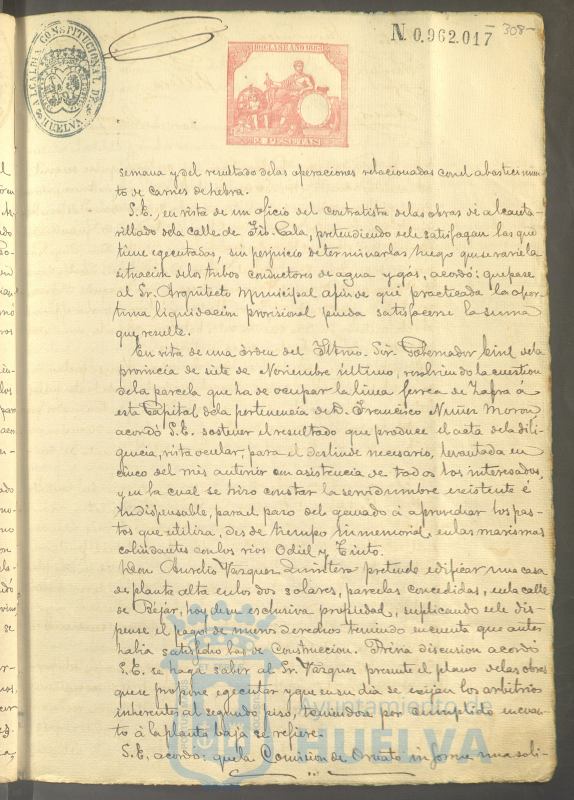 N. 0.962.017
308-
ALCALDIA CONSTITUCIONAL DE HUELVA
2 PESETAS
semana y del resultado delas operaciones relacionadas con el abastecimien
to de carnes de hebra.
S.E., en vista de un oficio del contratista delas obras de alcanta-
rillado dela calle de Fib. Cala, pretendiendo sele satisfagan las que
tiene egecutadas, sin perjuicio determinarlas luego que se varie la
situación delos tubos conductores de agua y gas, acordó: que pase
al Sr. Arquitecto Municipal afin de que practicada la opor-
tuna liquidacion provisional pueda satisfacerse la suma
que resulte.
En vista de una órden del Iltmo. Sor. Gobernador Civil dela
provincia de siete de Noviembre último, resolviendo la cuestion
dela parcela que ha de ocupar la linea ferrea de Zafra á
esta Capital dela pertenencia de D. Francisco Nuñez Moron,
acordó S.E. sostener el resultado que produce el acta dela dili-
gencia, vista ocular, para el deslinde necesario, levantada en
cinco del mes anterior con asistencia de todos los interesados,
y en la cual se hizo constar la servidumbre existente é
indispensable, para el paso del ganado á aprovechar los pas-
tos que utiliza, desde tiempo inmemorial, en las marismas
colindantes con los rios Odiel y Tinto.
Don Aurelio Vazquez Quintero pretende edificar una casa
de planta alta en los dos solares, parcelas concedidas, en la calle
de Bejar, hoy de su exclusiva propiedad, suplicando sele dis-
pense el pago de nuevos derechos teniendo en cuenta que antes
habia satisfecho los de construccion. Prévia discusion acordó
S.E. se haga saber al Sr. Vazquez presente el plano delas obras
que se propone egecutar y que en su dia se exijan los arbitrios
inherentes al segundo piso, teniendose por cumplido en cuan-
to á la planta baja se refiere.
S.E. acordó: que la Comision de Ornato informe una soli-
Ayuntamiento de
HUELVA